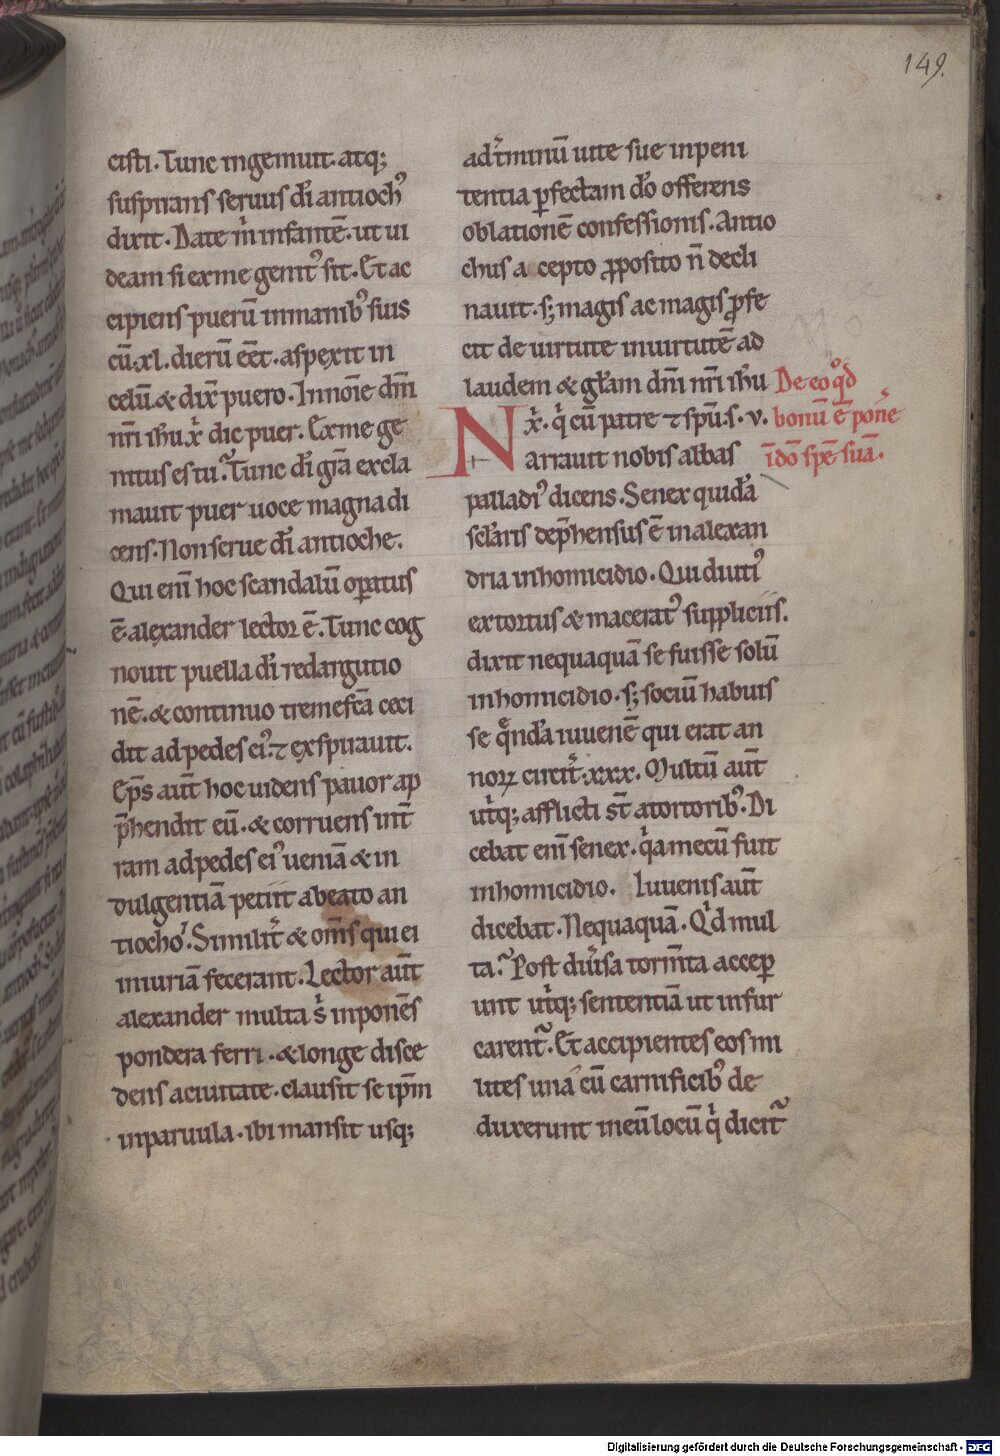 149.
cisti. Tunc ingemuit. atq;
suspirans seruus dī antioch᾿
dixit. Date m̄ infantē. ut ui
deam si ex me genit᾿ sit. Et ac
cipiens puerū inmanib᾿ suis
cū.xl. dierū eēt. aspexit in
celū. & dix̄ puero. Innoīe dn̄i
nr̄i ih̄u xp̄ dic puer. Ex me ge
nitus es tu? Tunc dī gr̄a excla
mauit puer uoce magna di
cens. Non serue dī antioche.
Qui enī hoc scandalū opatus
ē. alexander lector ē. Tunc cog
nouit puella dī redargutio
nē. & continuo tremefc̄a ceci
dit ad pedes ei᾿. ⁊ exspirauit.
Ep̄s aūt hoc uidens pauor ap
p̄hendit eū. & corruens int̄
ram ad pedes ei᾿ ueniā & in
dulgentiā petiit a beato an
tiocho. Similit̄ & om̄s qui ei
iniuriā fecerant. Lector aūt
alexander multa s᷒ inponēs
pondera ferri. & longe disce
dens a ciuitate. clausit se ip̄m
inparuula. ibi mansit usq;
ad t̄minū uite sue inpeni
tentia pfectam dō offerens
oblationē confessionis. Antio
chus a cepto pposito n̄ decli
nauit. s; magis ac magis pfe
cit de uirtute inuirtutē ad
laudem & glam dn̄i nr̄i ih̄u
x̄. q᷒ cū patre ⁊ spū. s. v.
De eo qd
bonū ē pone
ī dō spē suā.
Narrauit nobis abbas
palladi᾿ dicens. Senex quidā
sclaris dep̄hensus ē inalexan
dria inhomicidio. Qui diuti᾿
extortus & macerat᾿ suppliciis.
dixit nequaquā se fuisse solū
inhomicidio. s; sociū habuis
se qndā iuuenē qui erat an
noꝝ circit̄ .xxx. Multū aūt
ut᷒q; afflicti st̄ atortorib᾿. Di
cebat enī senex. q᷒a mecū fuit
inhomicidio. Iuuenis aūt
dicebat. Nequaquā. Qd mul
ta? Post diu᷒sa torm̄ta accep
unt ut᷒q; sententiā ut infur
carent᷒. Et accipientes eos mi
lites unā cū carnificib᾿ de
duxerunt ineū locū q᷒ dicit᷒
Digitalisierung gefördert durch die Deutsche Forschungsgemeinschaft - DFG